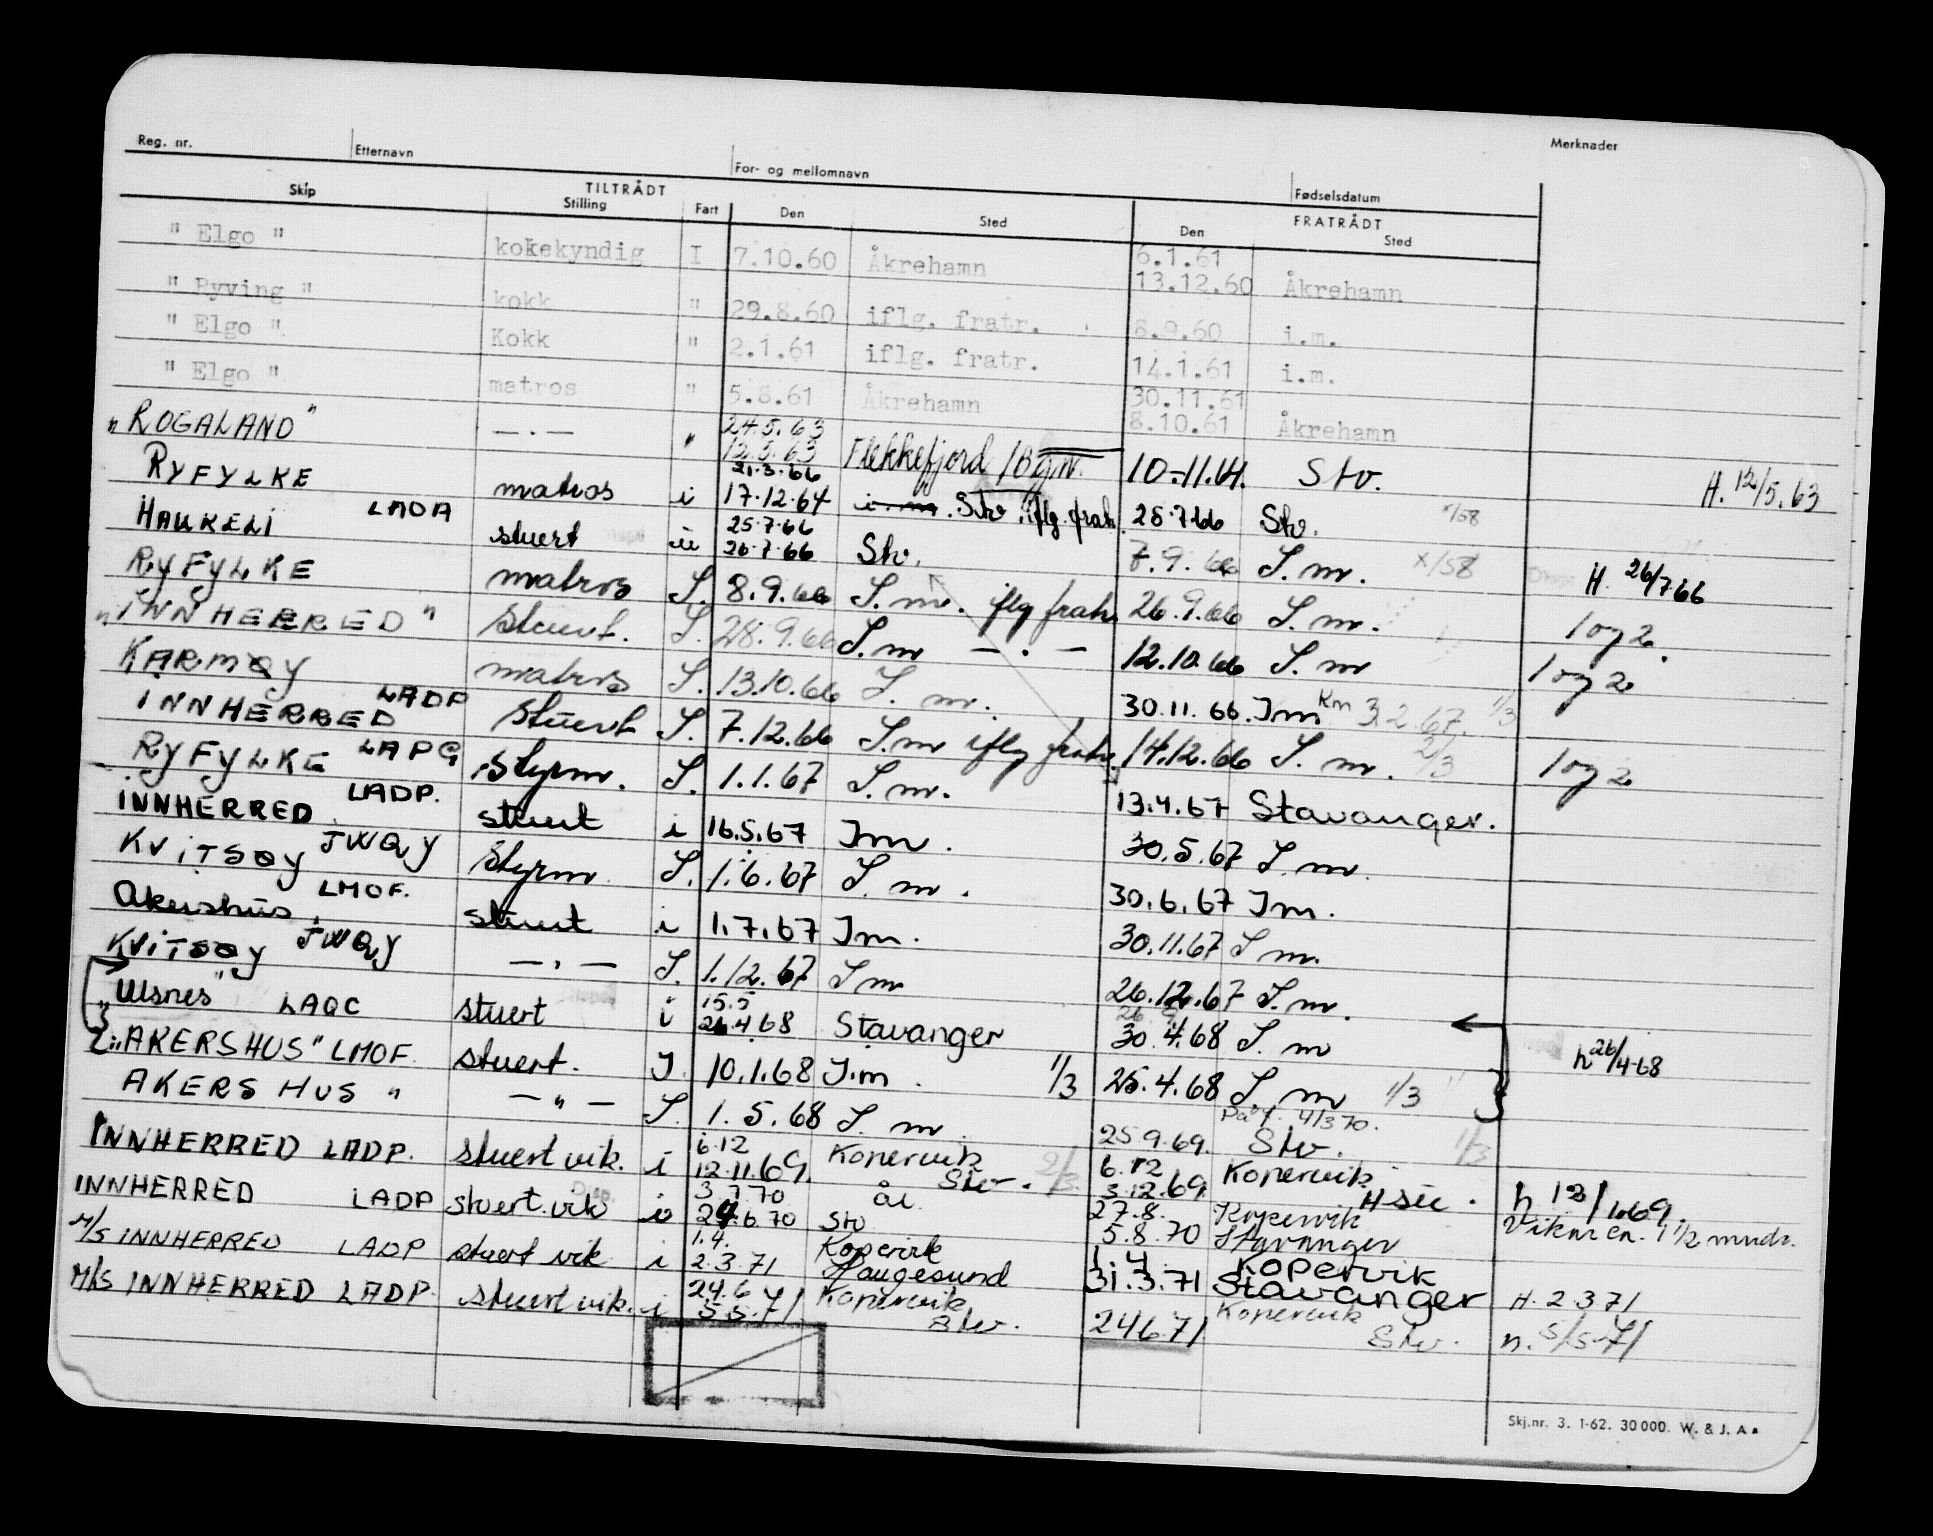 Reg. nr. Etternavn For- og mellomnavn Fødselsdatum Merknader
Skip TILTRÅDT Stilling Fart Den Sted FRATRÅDT Den Sted
" Elgo " kokekyndig I 7.10.60 Åkrehamn 6.1.61
13.12.60 Åkrehamn
" Ryving " kokk " 29.8.60 iflg. fratr. 8.9.60 i.m.
" Elgo " Kokk " 2.1.61 iflg. fratr. 14.1.61 i.m.
" Elgo " matros " 5.8.61 Åkrehamn 30.11.61
8.10.61 Åkrehamn
"ROGALAND" — . — " 24.5.63
13.5.63 Flekkefjord / 10.-11. Stv. H. 12/5.63
21.3.66
RYFYLKE matros i 17.12.64 Stv. iflg. fratr. 28.7.66 Stv. x/58
25.7.66
HAUKELI LMOA stuert ii 26.7.66 Stv. 7.9.66 S.m. x/58 H. 26/7 66
RYFYLKE matros S. 8.9.66 S.m. iflg fratr. 26.9.66 S.m. 1 og 2.
"INNHERRED" Stuert. S. 28.9.66 S.m — . — 12.10.66 S.m 1 og 2
KARMØY matros S. 13.10.66 S.m. 30.11.66. Im Km 3.2.67. 1/3
INNHERRED LADP Stuert S. 7.12.66 S.m iflg fratr. 14.12.66 S.m. 2/3 1 og 2
RYFYLKE LAPG Styrm. S. 1.1.67 S.m. 13.4.67 Stavanger.
INNHERRED LADP. stuert i 16.5.67 Im. 30.5.67 S.m.
KVITSØY JWQY Styrm. S. 1.6.67 S.m. 30.6.67 Im.
Akershus. LMOF. stuert i 1.7.67 Im. 30.11.67 S.m.
KVITSØY JWQY — . — S. 1.12.67 S m 26.12.67 S.m.
15.5
"Ulsnes" LAQC stuert i 26.4.68 Stavanger 30.4.68 S.m h 26/4-68
"AKERSHUS" LMOF. stuert. I. 10.1.68 I.m. 1/3 25.4.68 S.m 1/3
AKERSHUS " — " — S. 1.5.68 S.m. 25.9.69. Stv. 1/3
6.12 Kopervik 6.12 Kopervik
INNHERRED LADP. stuert vik. i 12.11.69. Stv. 2/3 3.12.69. H
3.7.70 27.8. Kopervik
INNHERRED LADP stuert. vik i 6.70 Stv 5.8.70 Stavanger Vikar ca. 1 1/2 mndr.
1.4. Kopervik 1.4 Kopervik
M/S INNHERRED LADP stuert vik i 2.3.71 Haugesund 31.3.71 Stavanger H. 2.3 71
24.6 Kopervik Kopervik
M/S INNHERRED LADP. stuert vik. i 5.5.71 Stv. 24.6.71 Stv. h. 5/5-71
Skj.nr. 3. 1-62. 30 000. W. & J. A s